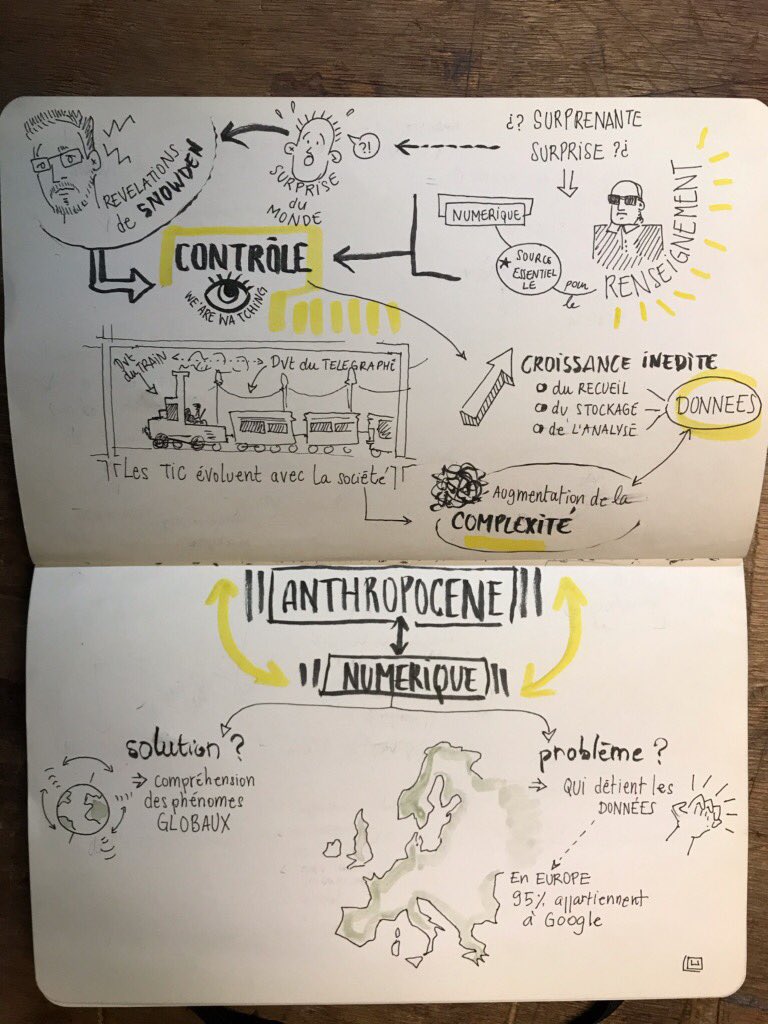 REVELATIONS
de SNOWDEN
?!
SURPRISE
du
MONDE
¿? SURPRENANTE
SURPRISE ?¿
NUMERIQUE
SOURCE
ESSENTIEL
LE
pour
le
RENSEIGNEMENT
CONTRÔLE
WE'ARE WATCHING
Dvt
du TRAIN
Dvt du TELEGRAPHE
Les TIC évoluent avec la société
CROISSANCE INEDITE
du RECUEIL
du STOCKAGE
de L'ANALYSE
DONNEES
Augmentation de la
COMPLEXITÉ
ANTHROPOCENE
NUMERIQUE
solution ?
⇒ compréhension
des phénomes
GLOBAUX
problème ?
⇒ QUI détient les
DONNÉES
En EUROPE
95% appartiennent
à Google